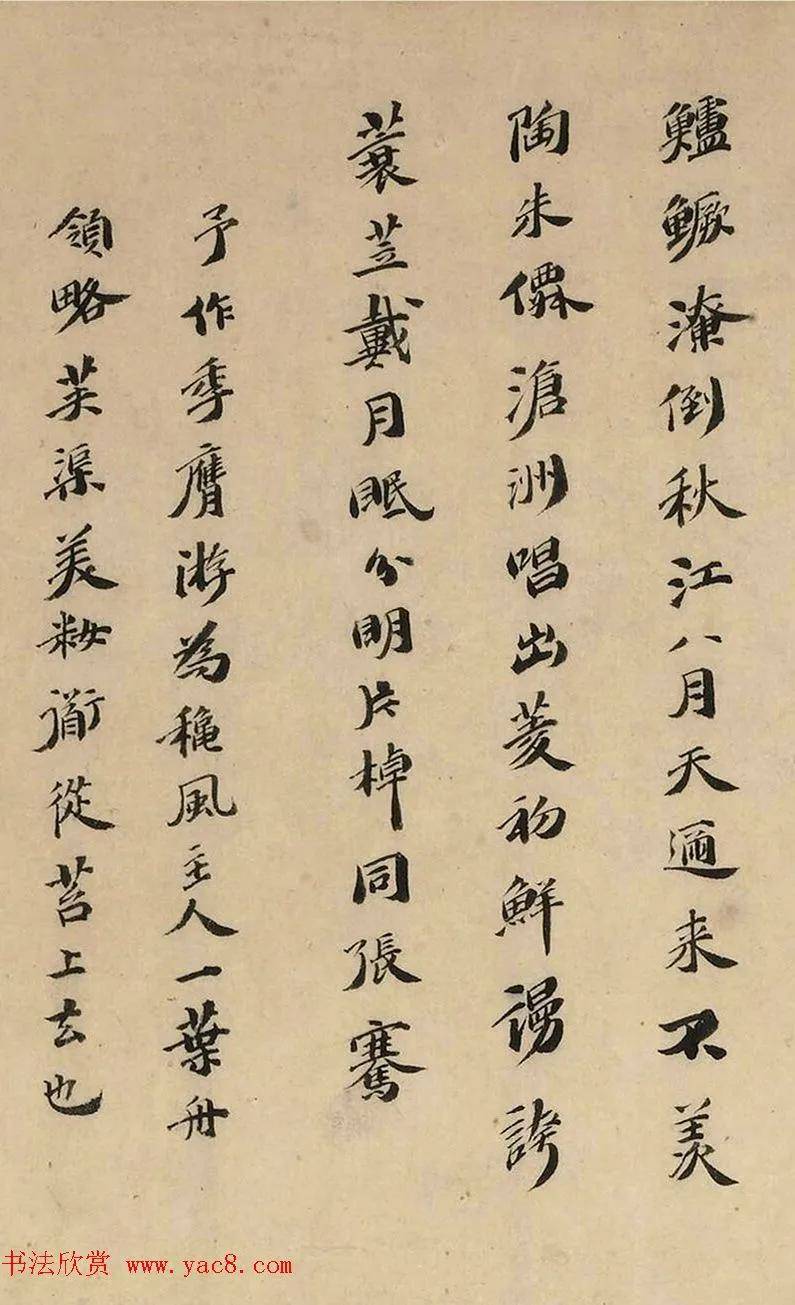 鱸鱖潦倒秋江八月天邇来不羡
陶朱僊滄洲唱出菱初鮮謾誇
蓑苙戴月眠分明片棹同張騫
予作季膺游為穐風主人一葉舟
領略芙渠美籹衜從苕上去也
书法欣赏 www.yac8.com